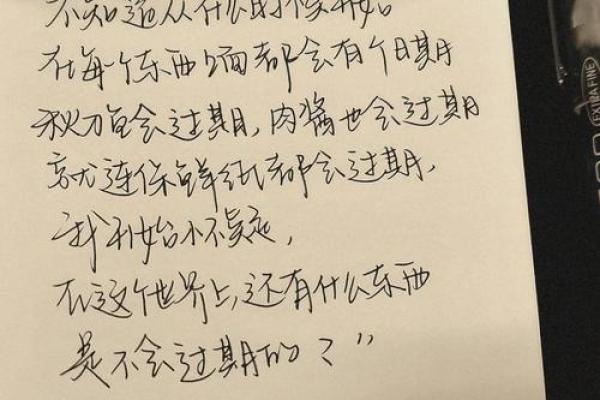 不知道从什么时候开始
在每个东西上面都会有个日期
秋刀鱼会过期,肉酱也会过期
就连保鲜纸都会过期,
我开始不确定,
在这个世界上,还有什么东西
是不会过期的?”
EXTRA FINE